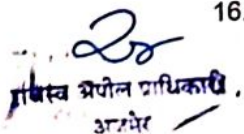 16
राजस्व अपील प्राधिकारी,
अजमेर